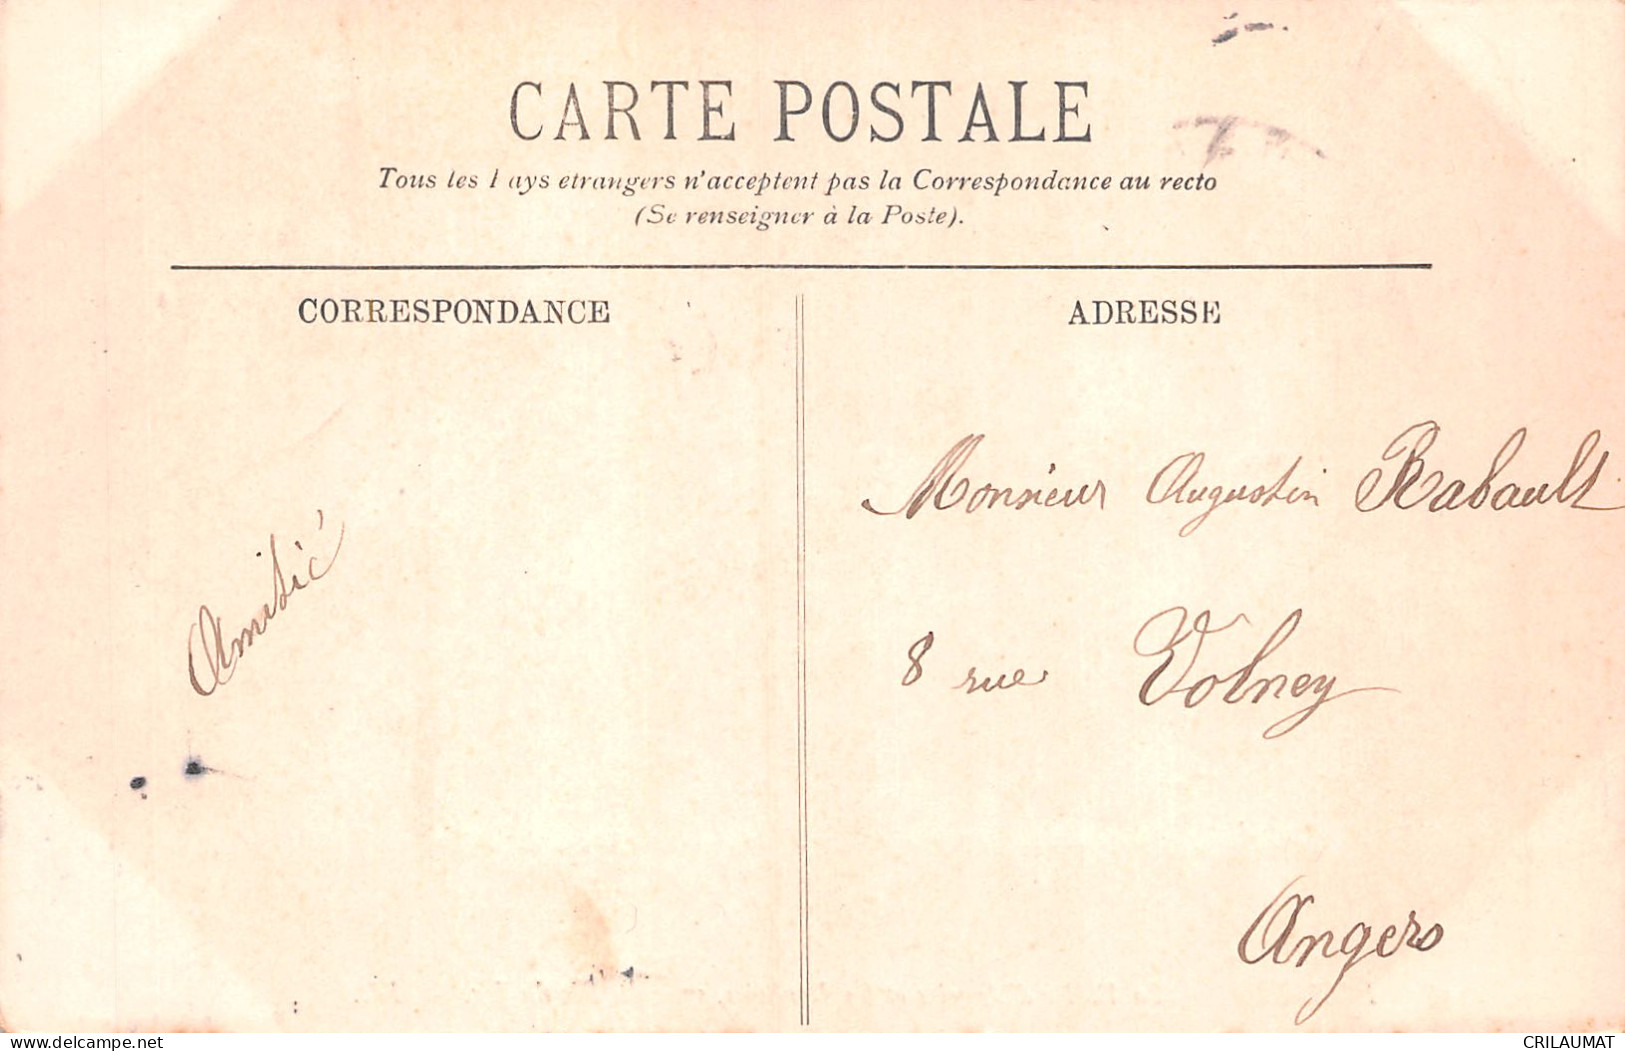 CARTE POSTALE
Tous les Pays etrangers n'acceptent pas la Correspondance au recto
(Se renseigner à la Poste).
CORRESPONDANCE
ADRESSE
Amitié
Monsieur Augustin Rabault
8 rue Volney
Angers
www.delcampe.net
CRILAUMAT